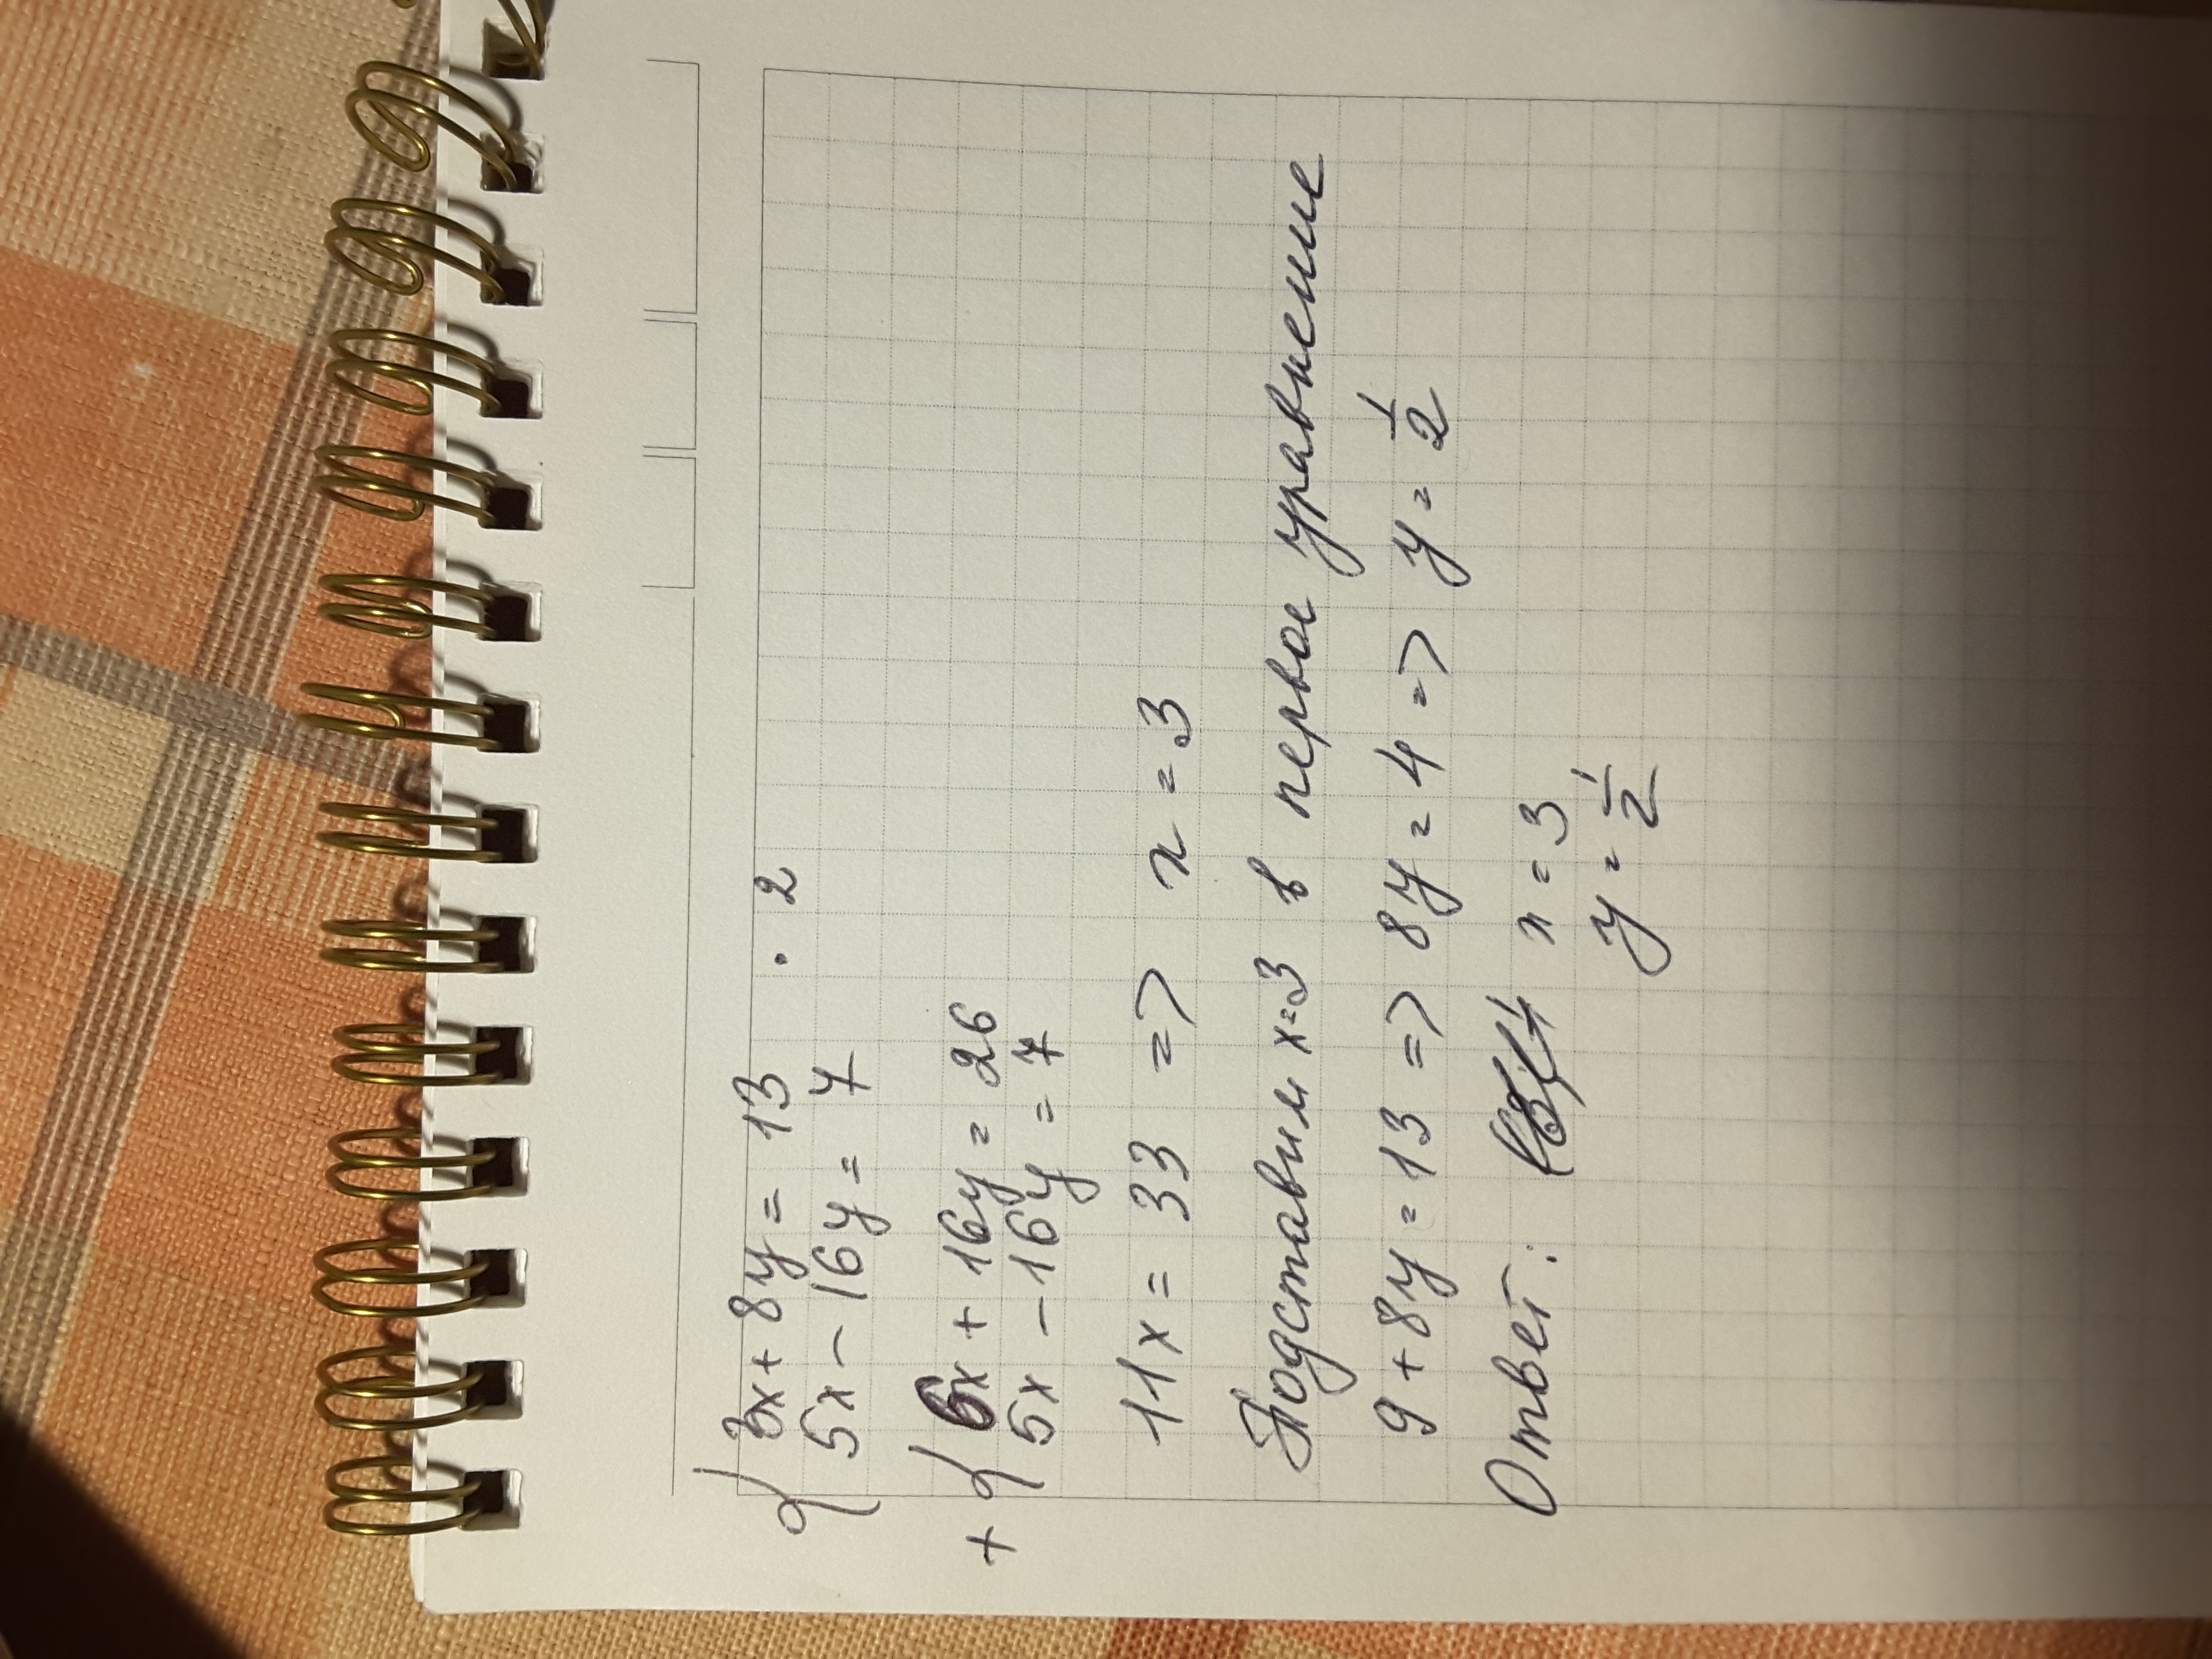 { 3x + 8y = 13 · 2
5x - 16y = 7
+ { 6x + 16y = 26
5x - 16y = 7
11x = 33 => x = 3
Подставим x=3 в первое уравнение
9 + 8y = 13 => 8y = 4 => y = 1/2
Ответ: x = 3
y = 1/2